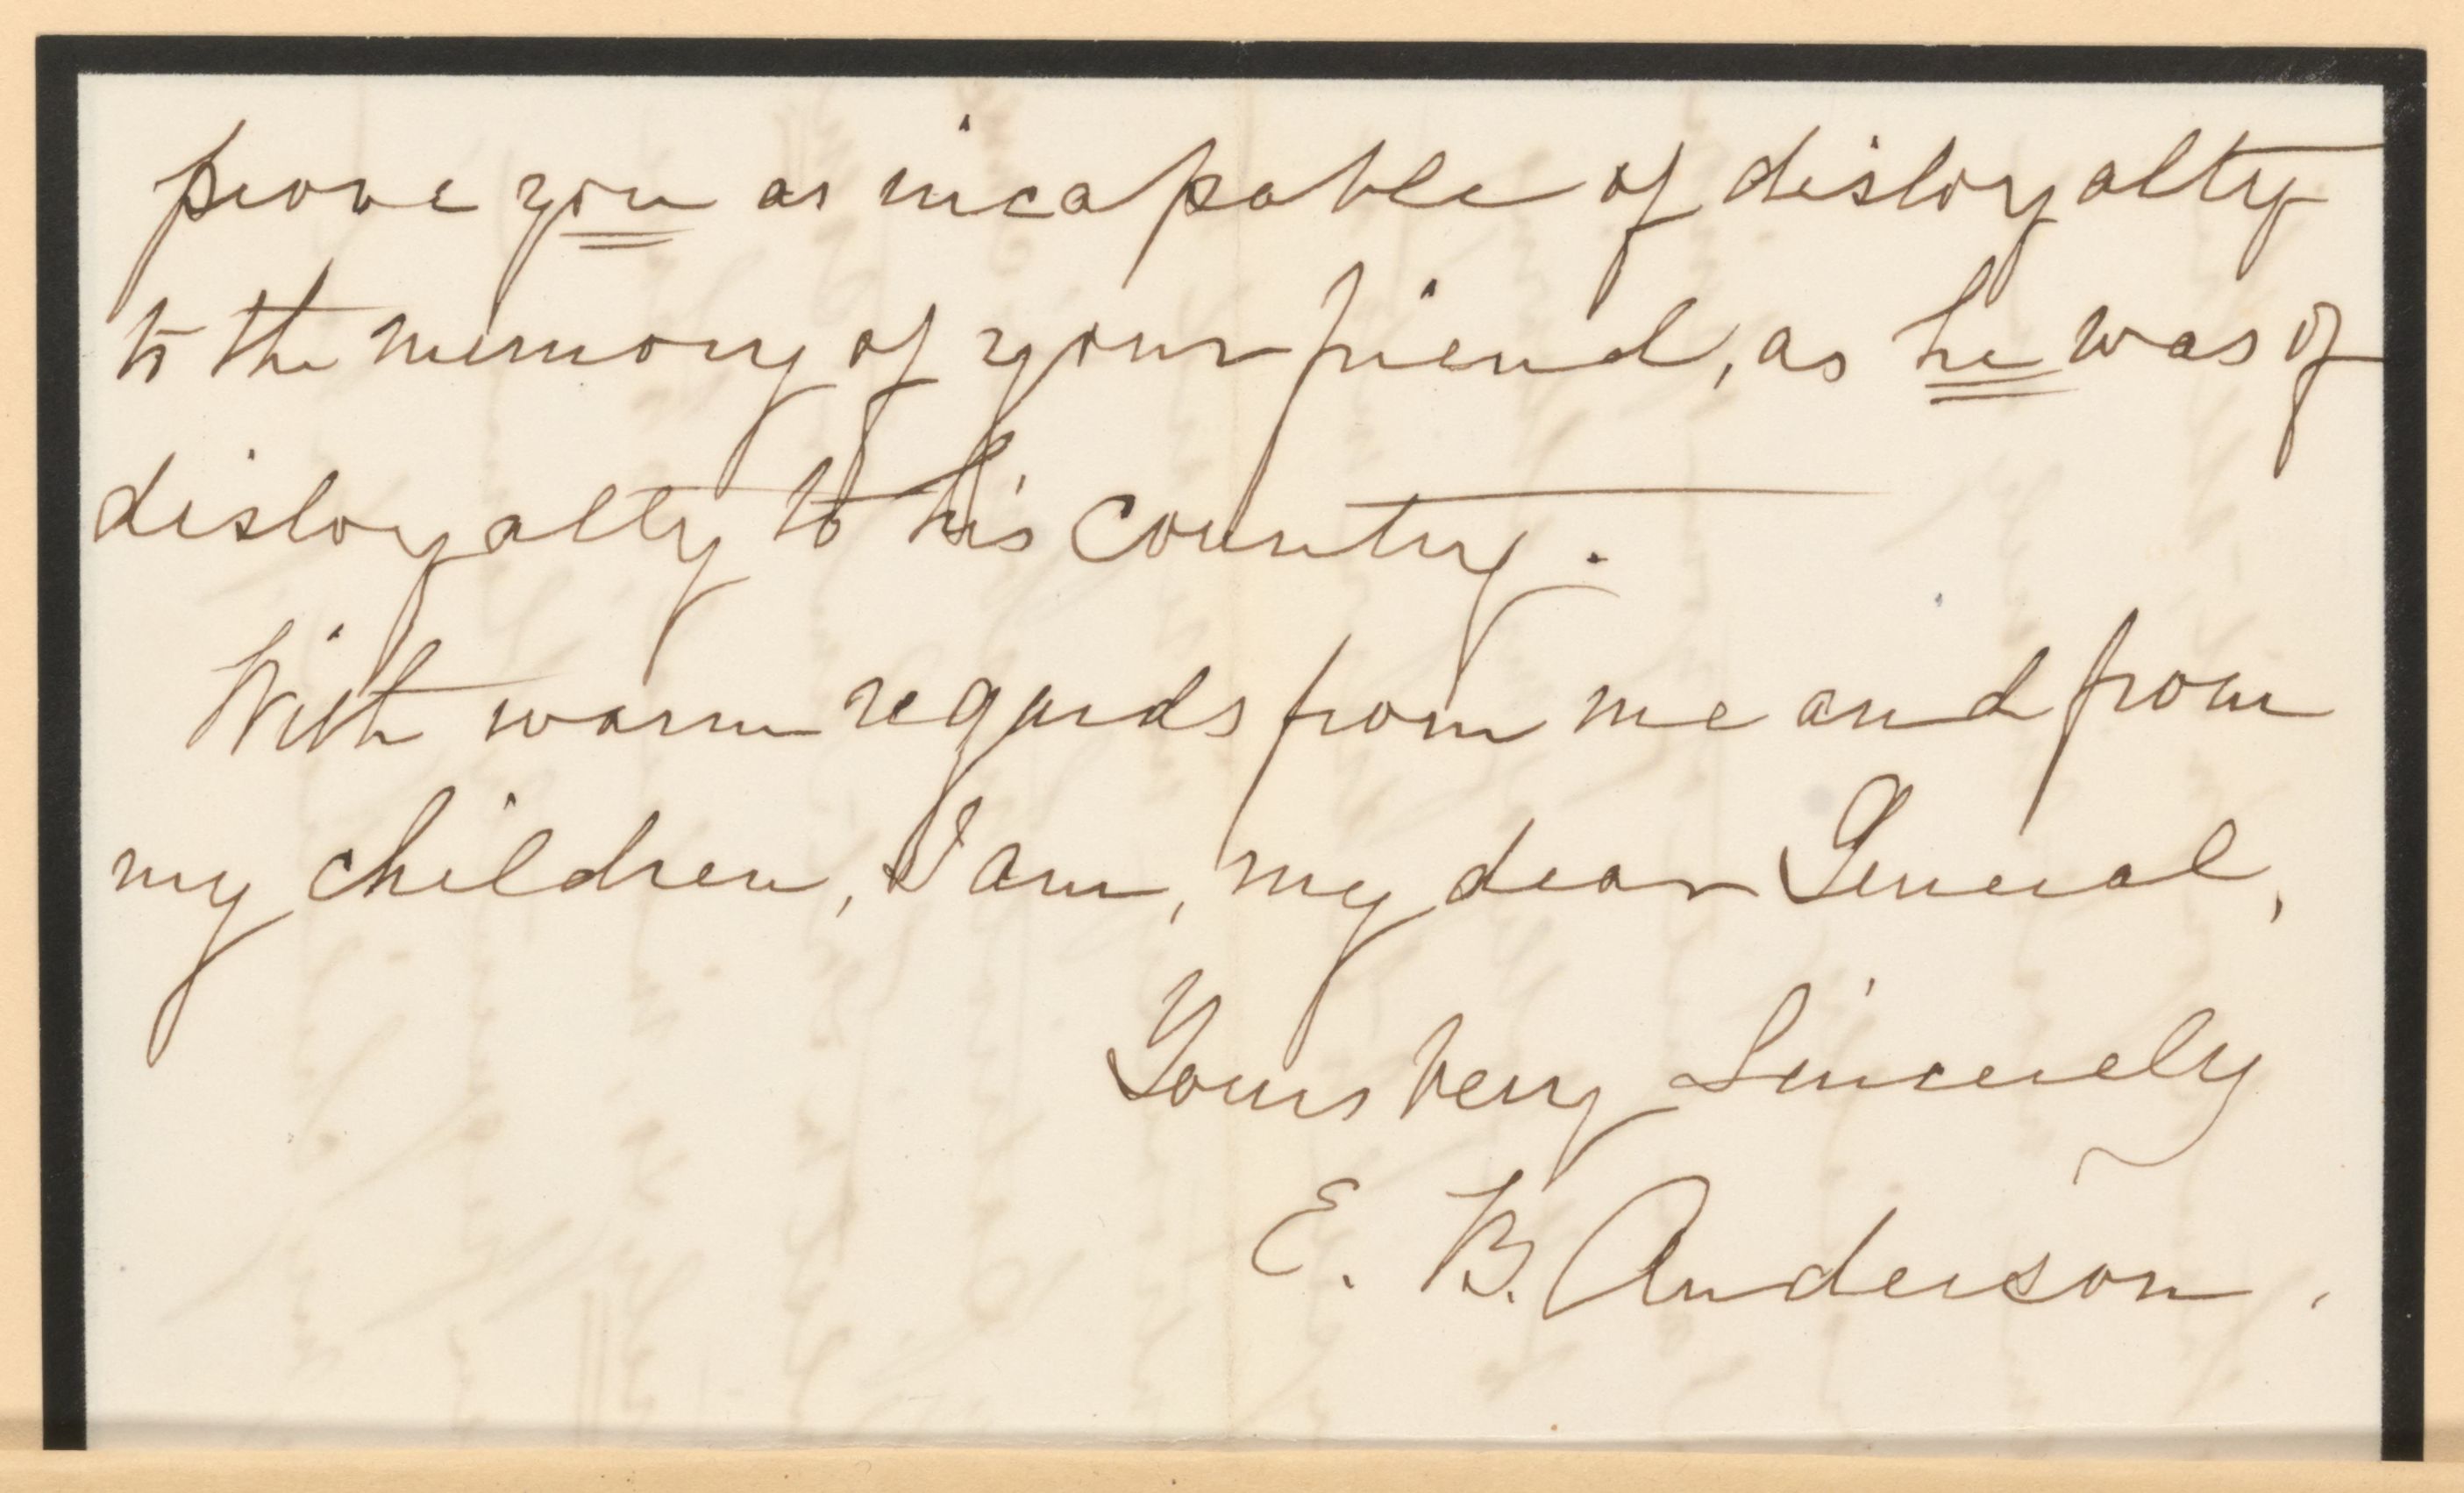 prove you as incapable of disloyalty
to the memory of your friend, as he was of
disloyalty to his Country.
With warm regards from me and from
my children, I am, my dear General,
Yours very Sincerely
E. B. Anderson.